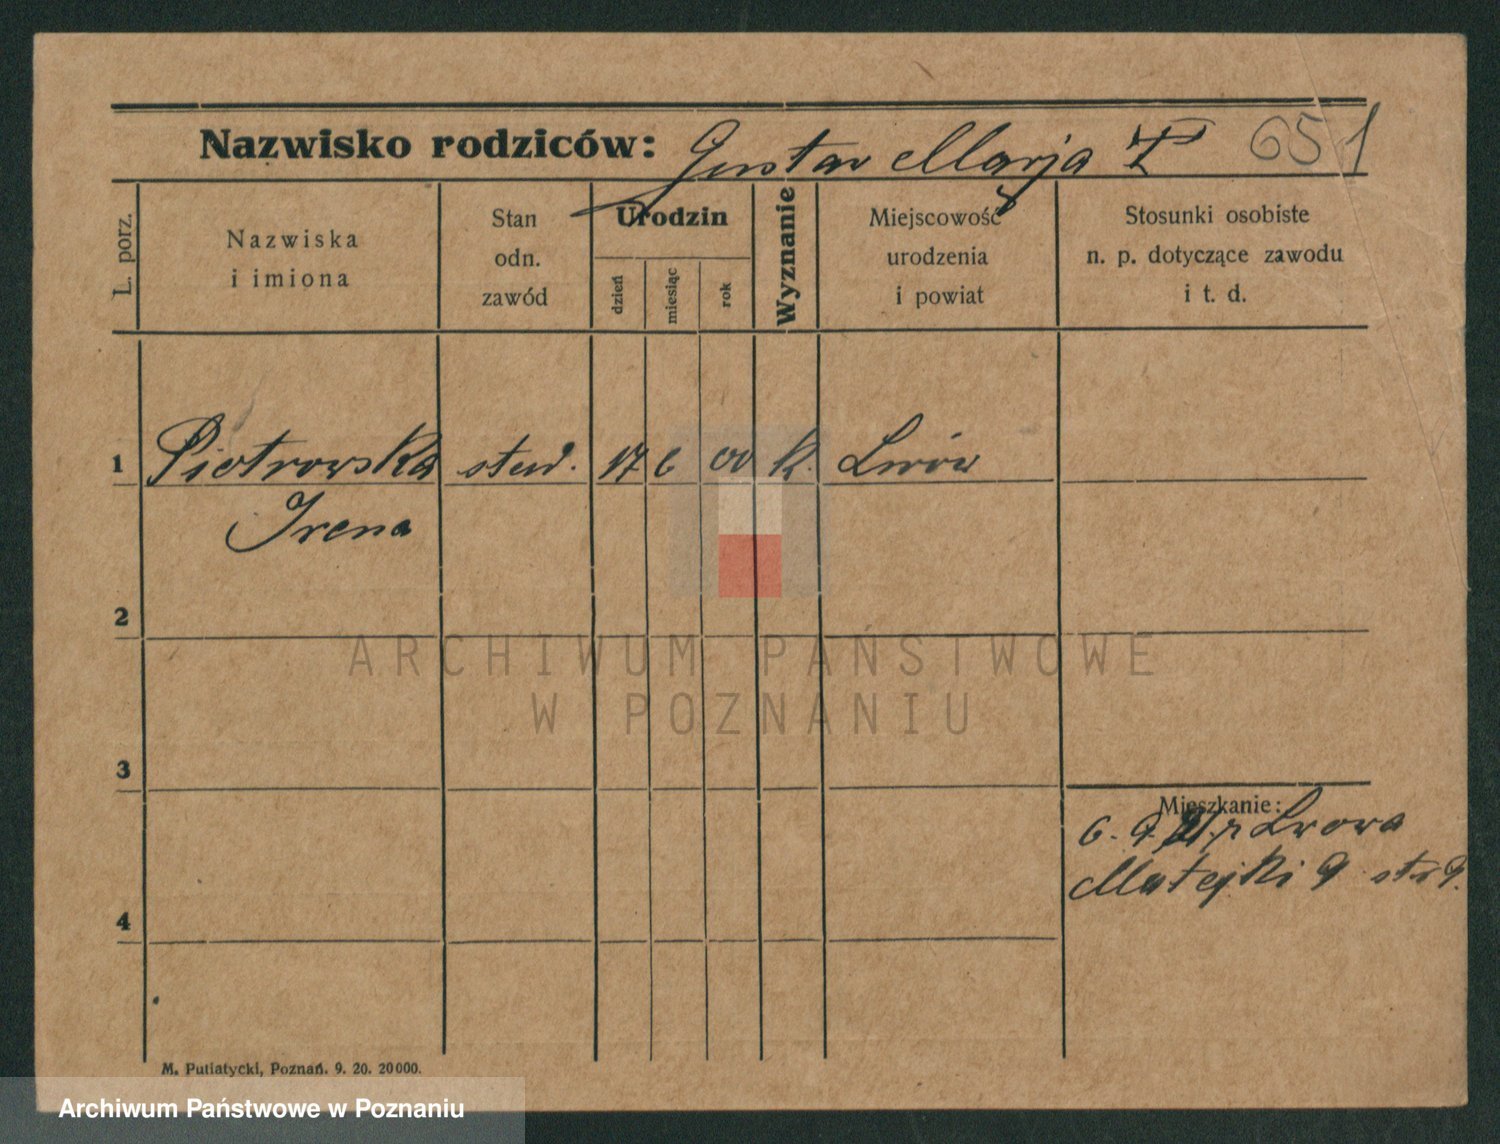 Nazwisko rodziców: Gustav Marja 651
L. porz.
Nazwiska
i imiona
Stan
odn.
zawód
Urodzin
dzień
miesiąc
rok
Wyznanie
Miejscowość
urodzenia
i powiat
Stosunki osobiste
n. p. dotyczące zawodu
i t. d.
1 Piotrowska stud. 17 6 00 k. Lwów
Irena
2
3
4
Mieszkanie:
6. 9. 21. z Lwowa
Matejki 9
M. Putiatycki, Poznań. 9. 20. 20000.
ARCHIWUM PAŃSTWOWE
W POZNANIU
Archiwum Państwowe w Poznaniu